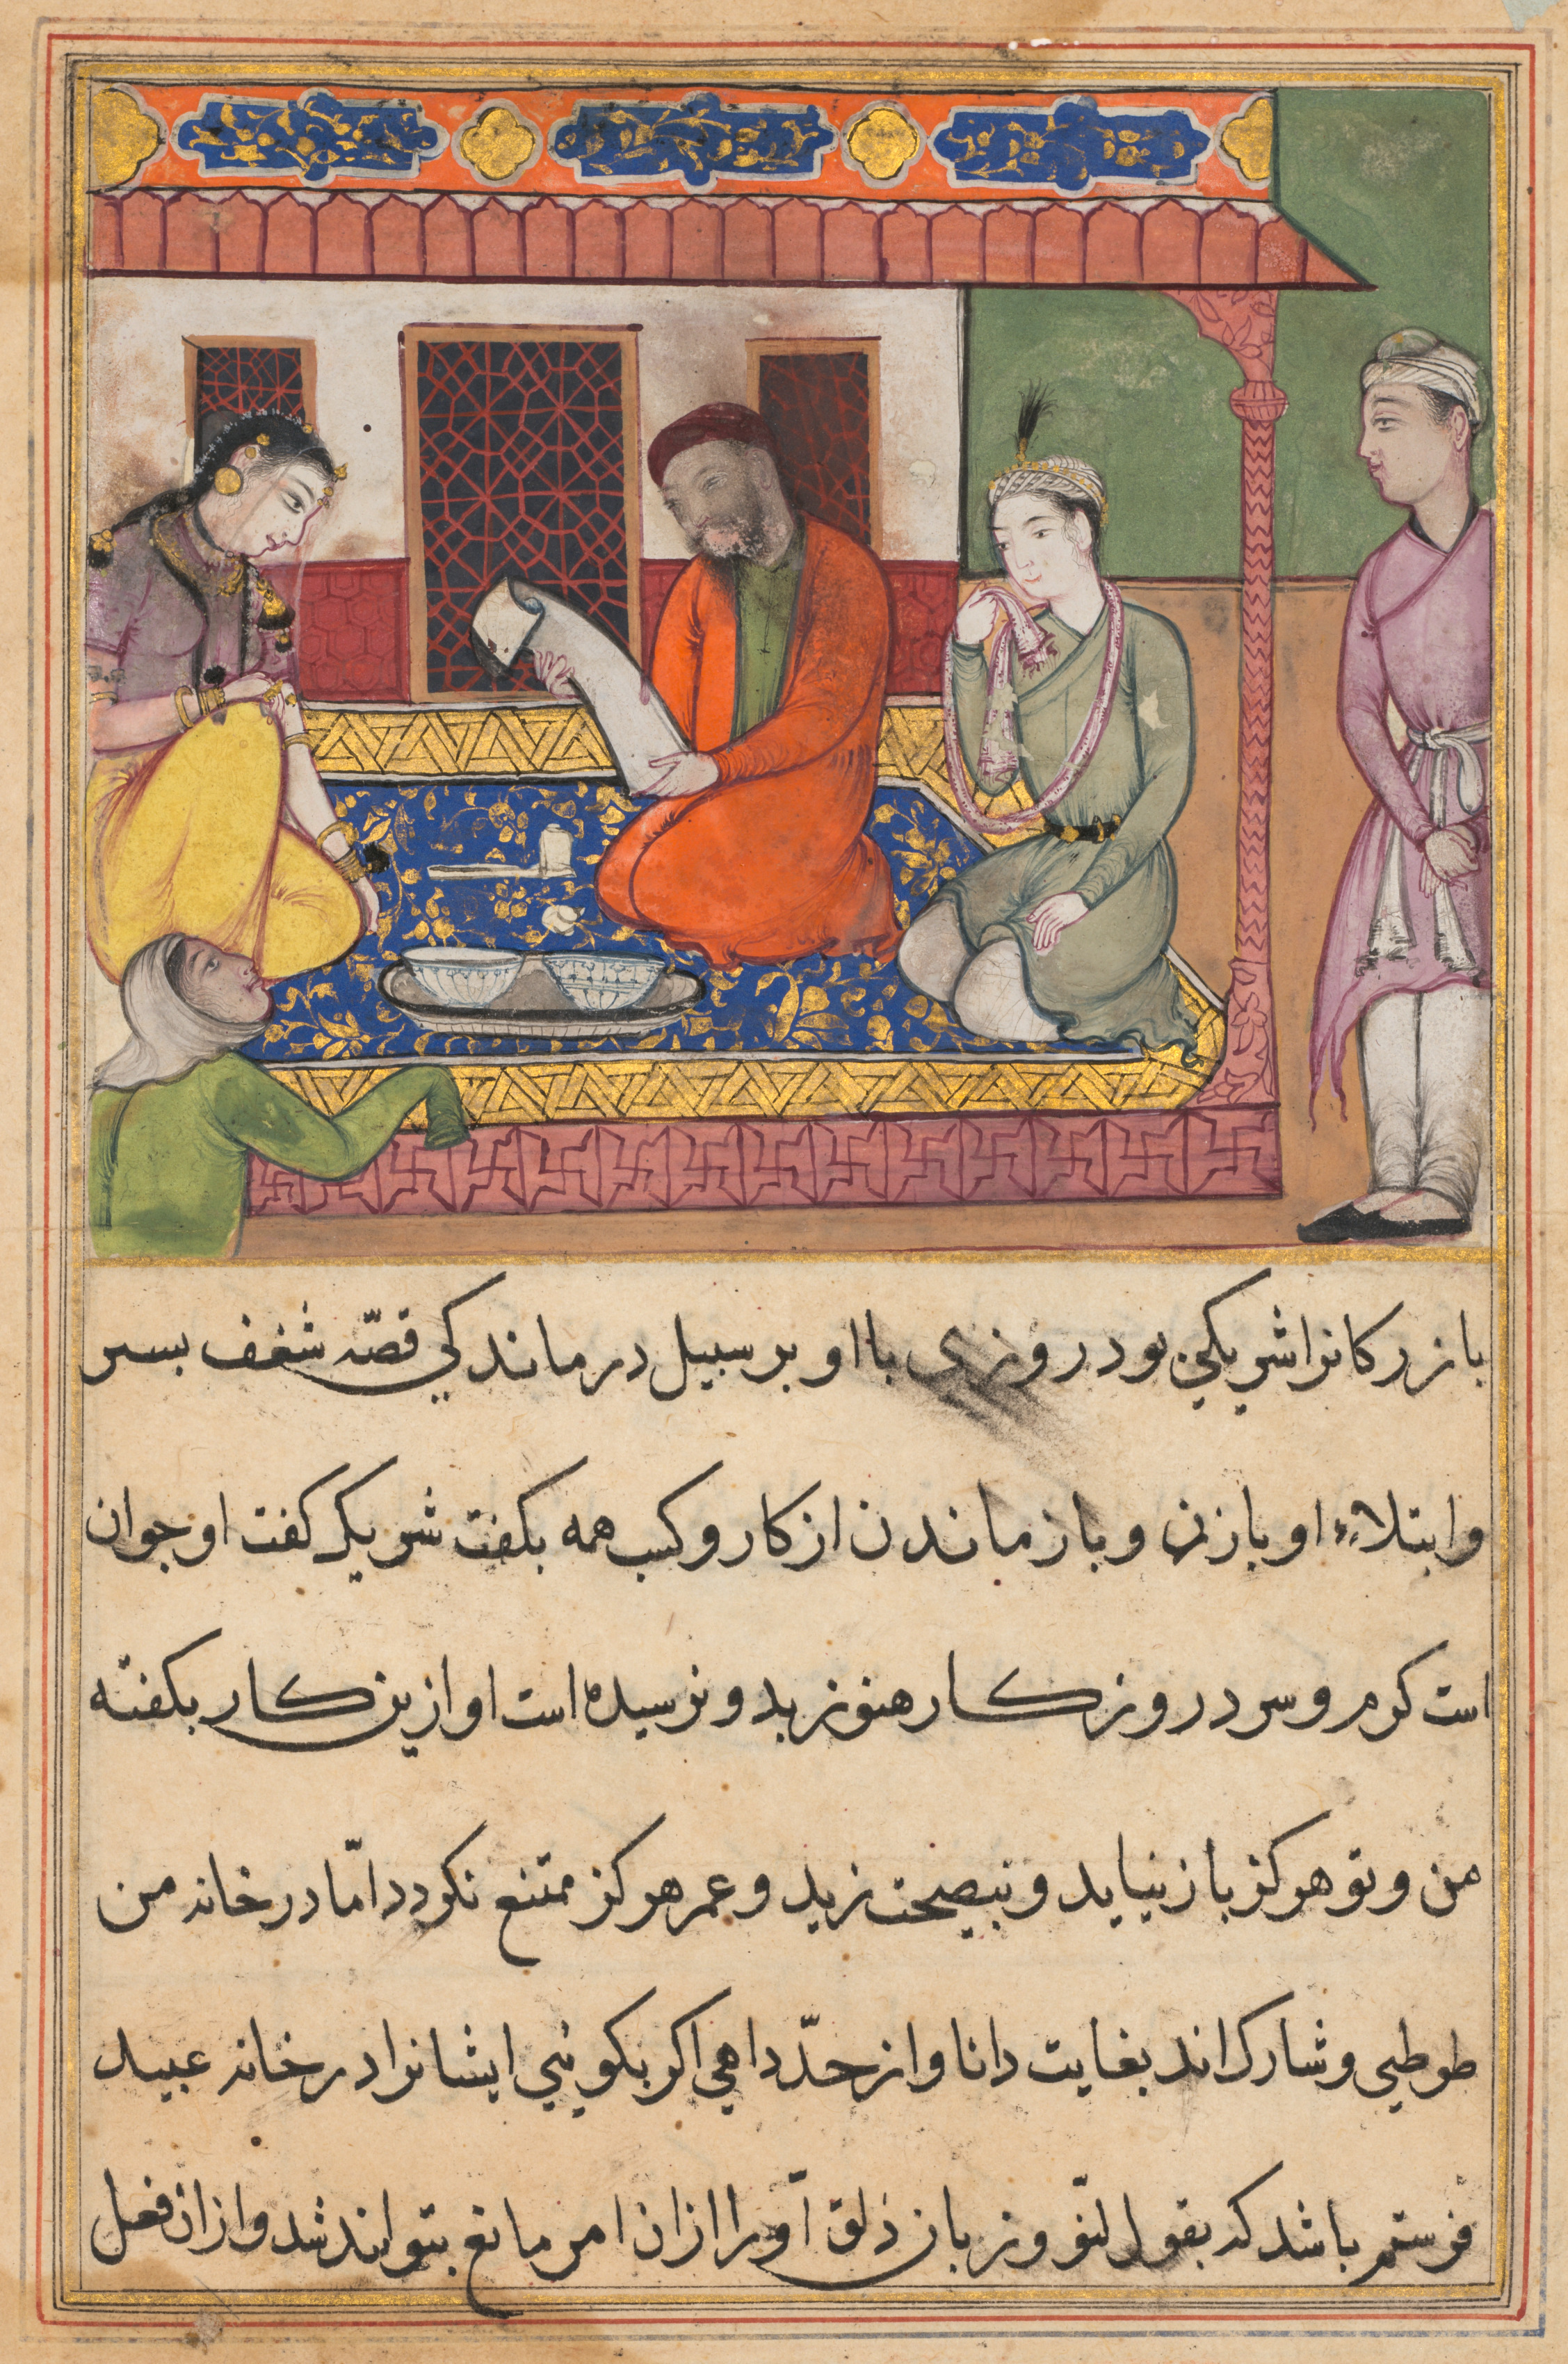 بازرکانرا شریکی بود روزی با او بر سبیل درماندکی قصّه شغف پسر
وابتلاء او با زن و باز ماندن از کار و کسب همه بکفت شریک کفت او جوان
است کرم و سرد روزکار هنوز بدو نرسیده است او ازین کار بکفته
من و تو هرکز باز نیاید و بنصیحت زید و عمر هرکز ممتنع نکردد امّا در خانه من
طوطیی و شارک اند بغایت دانا و از حدّ داهی اکر بکویٔی ایشانرا در خانه عبید
فرستم باشد که بقول لیّن و زبان ذلق او را ازان امر مانع بتوانند شد و ازان فعل